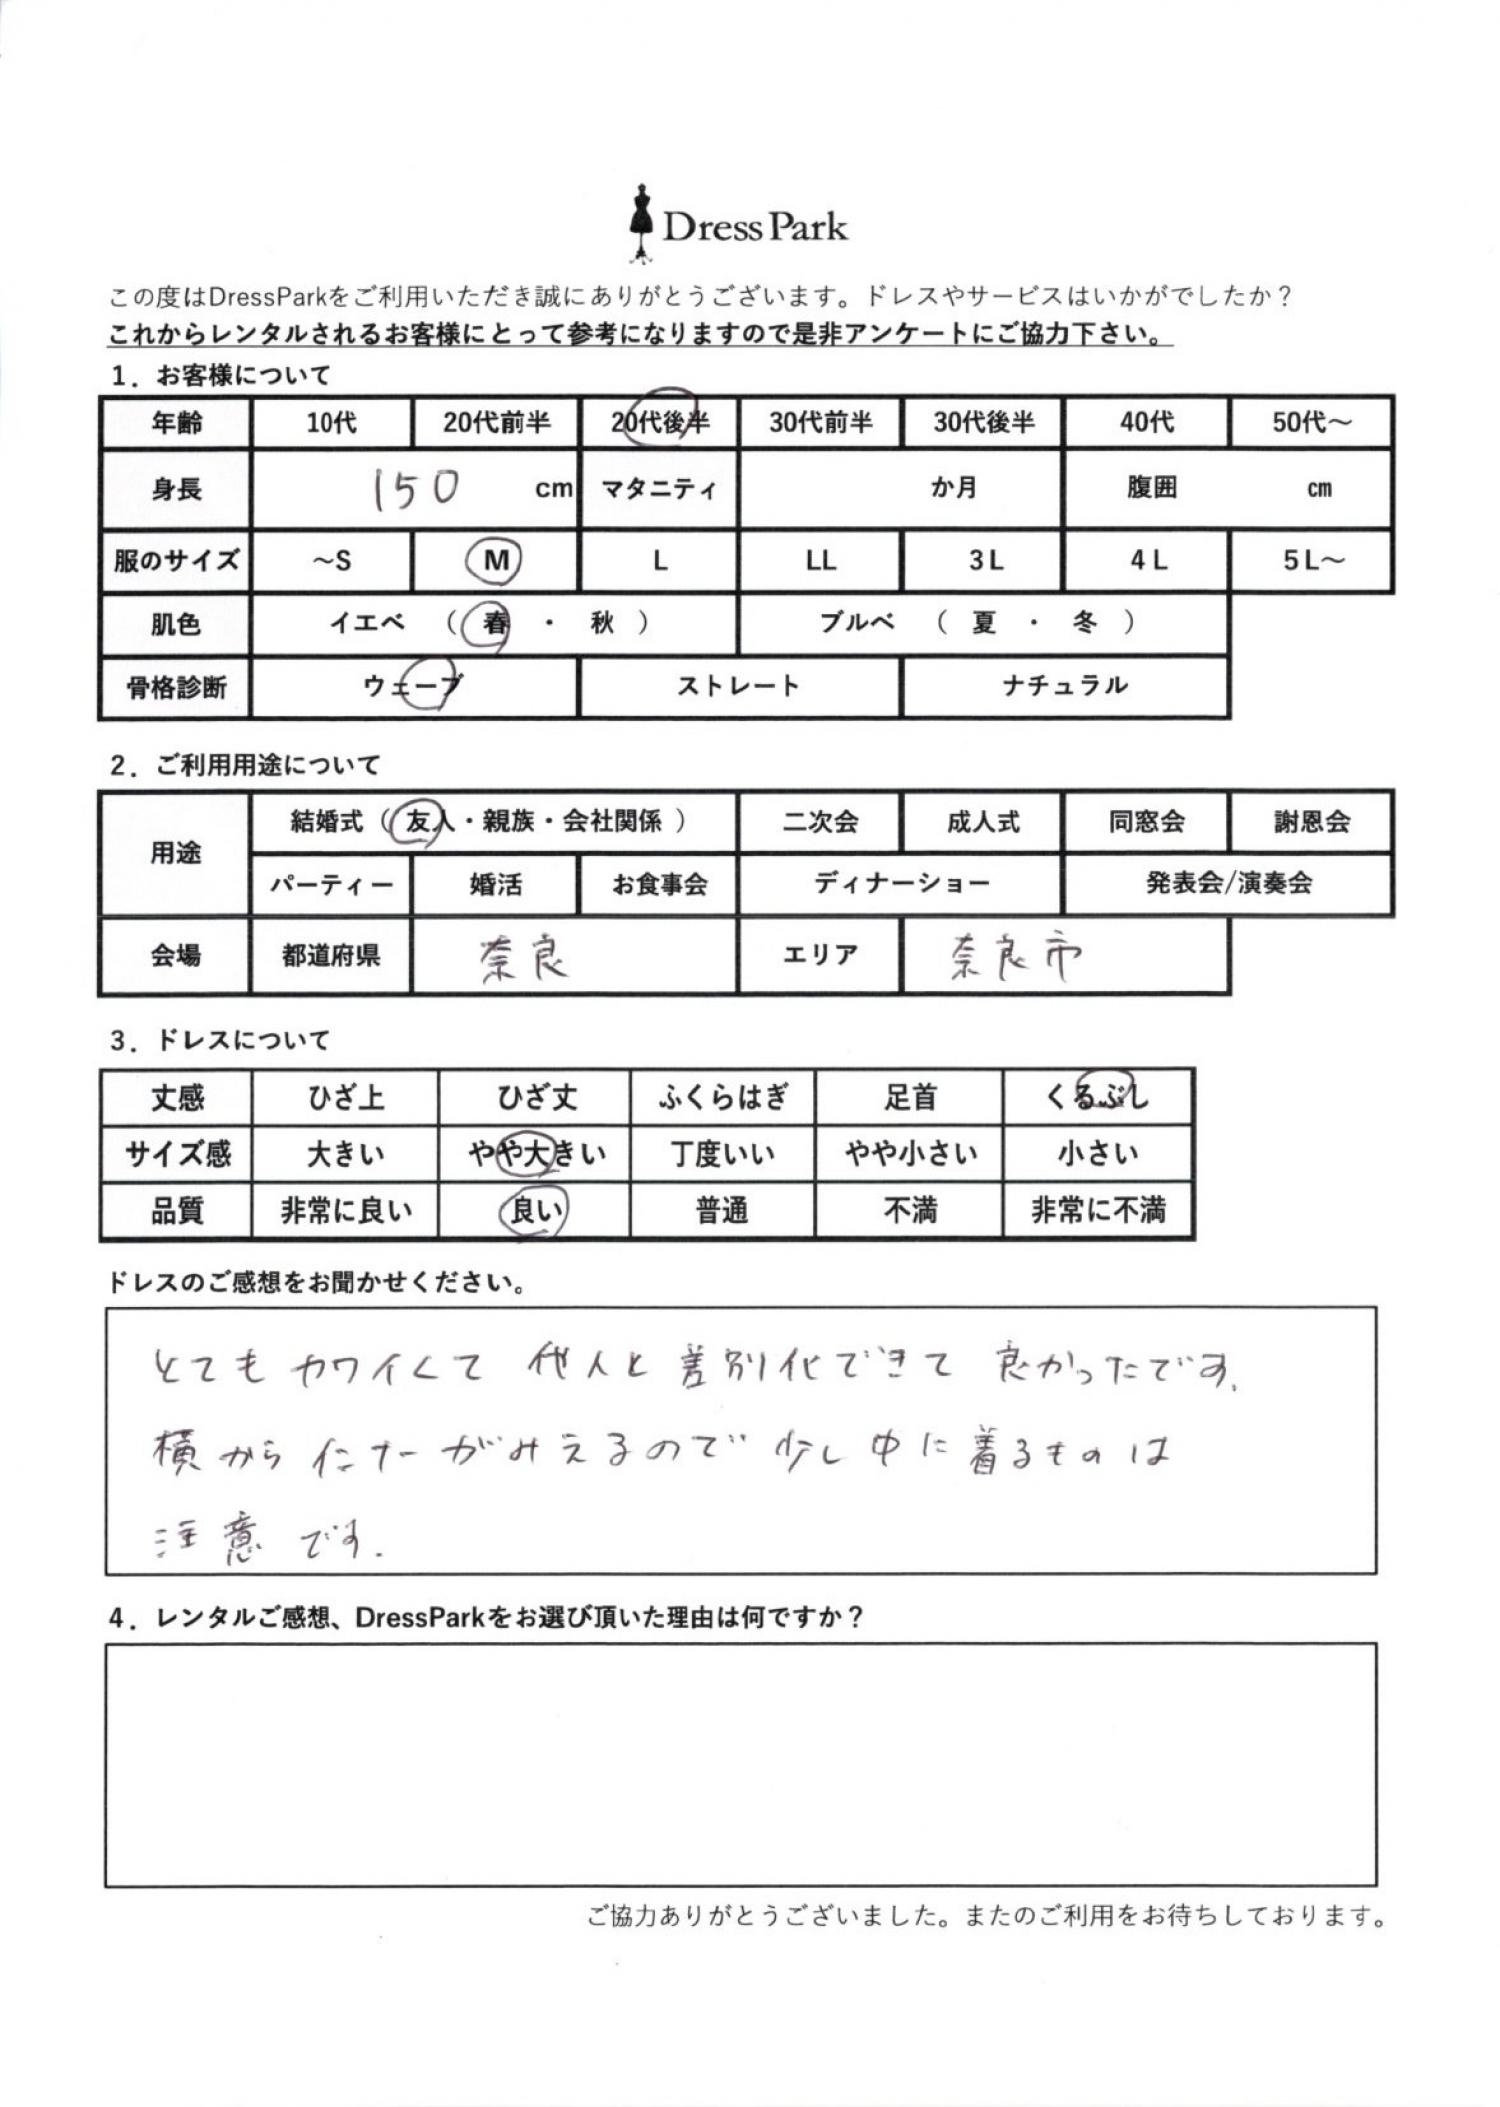 Dress Park
この度はDressParkをご利用いただき誠にありがとうございます。ドレスやサービスはいかがでしたか？
これからレンタルされるお客様にとって参考になりますので是非アンケートにご協力下さい。
1．お客様について
年齢 10代 20代前半 20代後半 30代前半 30代後半 40代 50代～
身長 150 cm マタニティ か月 腹囲 cm
服のサイズ ～S M L LL 3L 4L 5L～
肌色 イエベ （ 春 ・ 秋 ） ブルベ （ 夏 ・ 冬 ）
骨格診断 ウェーブ ストレート ナチュラル
2．ご利用用途について
用途 結婚式（ 友人・親族・会社関係 ） 二次会 成人式 同窓会 謝恩会
パーティー 婚活 お食事会 ディナーショー 発表会/演奏会
会場 都道府県 奈良 エリア 奈良市
3．ドレスについて
丈感 ひざ上 ひざ丈 ふくらはぎ 足首 くるぶし
サイズ感 大きい やや大きい 丁度いい やや小さい 小さい
品質 非常に良い 良い 普通 不満 非常に不満
ドレスのご感想をお聞かせください。
とてもカワイくて 他人と差別化できて 良かったです.
横からインナーがみえるので 少し中に着るものは
注意です.
4．レンタルご感想、DressParkをお選び頂いた理由は何ですか？
ご協力ありがとうございました。またのご利用をお待ちしております。